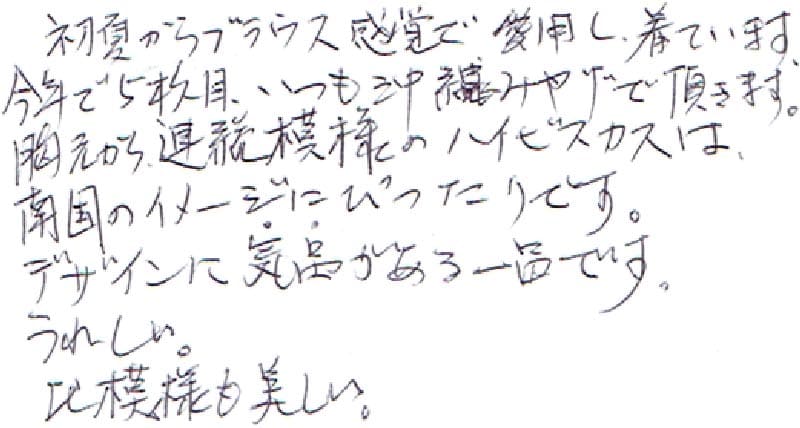 初夏からブラウス感覚で愛用し、着ています
今年で5枚目、いつも沖縄みやげで頂きます。
胸元から連続模様のハイビスカスは、
南国のイメージにぴったりです。
デザインに気品がある一品です。
うれしい。
比模様も美しい。